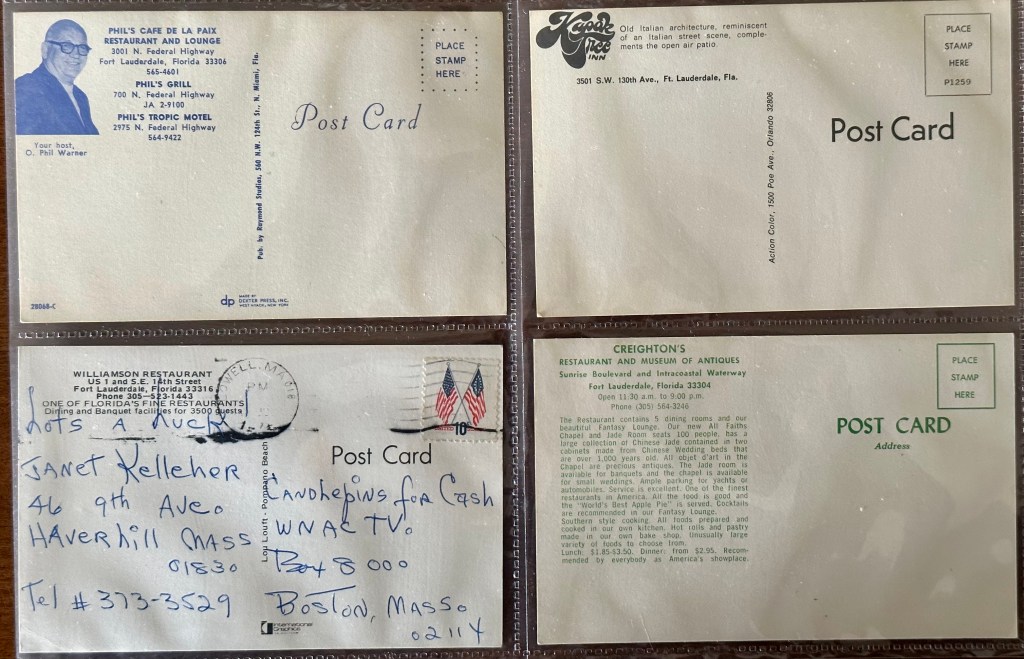 PHIL'S CAFE DE LA PAIX
RESTAURANT AND LOUNGE
3001 N. Federal Highway
Fort Lauderdale, Florida 33306
565-4601
PHIL'S GRILL
700 N. Federal Highway
JA 2-9100
PHIL'S TROPIC MOTEL
2975 N. Federal Highway
564-9422
Your host,
O. Phil Warner
Pub. by Raymond Studios, 560 N.W. 124th St., N. Miami, Fla.
PLACE
STAMP
HERE
Post Card
28068-C
dp
MADE BY
DEXTER PRESS, INC.
WEST NYACK, NEW YORK
Kapok
Tree
INN
Old Italian architecture, reminiscent
of an Italian street scene, comple-
ments the open air patio.
3501 S.W. 130th Ave., Ft. Lauderdale, Fla.
Action Color, 1500 Poe Ave., Orlando 32806
PLACE
STAMP
HERE
P1259
Post Card
WILLIAMSON RESTAURANT
US 1 and S.E. 14th Street
Fort Lauderdale, Florida 33316
Phone 305-523-1443
ONE OF FLORIDA'S FINE RESTAURANTS
Dining and Banquet facilities for 3500 guests
LOWELL, MA 018
PM
10c
Lots A Luck!
JANET Kelleher
46 9th Ave.
HAverhill MASS
01830
Tel # 373-3529
Lou Louft - Pompano Beach
Post Card
CANDLEPINS for Cash
WNAC TV.
Box 8000
BOSTON, MASS.
02114
International
Graphics
CREIGHTON'S
RESTAURANT AND MUSEUM OF ANTIQUES
Sunrise Boulevard and Intracoastal Waterway
Fort Lauderdale, Florida 33304
Open 11:30 a.m. to 9:00 p.m.
Phone (305) 564-3246
The Restaurant contains 5 dining rooms and our
beautiful Fantasy Lounge. Our new All Faiths
Chapel and Jade Room seats 100 people, has a
large collection of Chinese Jade contained in two
cabinets made from Chinese Wedding beds that
are over 1,000 years old. All objet d'art in the
Chapel are precious antiques. The Jade room is
available for banquets and the chapel is available
for small weddings. Ample parking for yachts or
automobiles. Service is excellent. One of the finest
restaurants in America. All the food is good and
the "World's Best Apple Pie" is served. Cocktails
are recommended in our Fantasy Lounge.
Southern style cooking. All foods prepared and
cooked in our own kitchen. Hot rolls and pastry
made in our own bake shop. Unusually large
variety of foods to choose from.
Lunch: $1.85-$3.50. Dinner: from $2.95. Recom-
mended by everybody as America's showplace.
PLACE
STAMP
HERE
POST CARD
Address